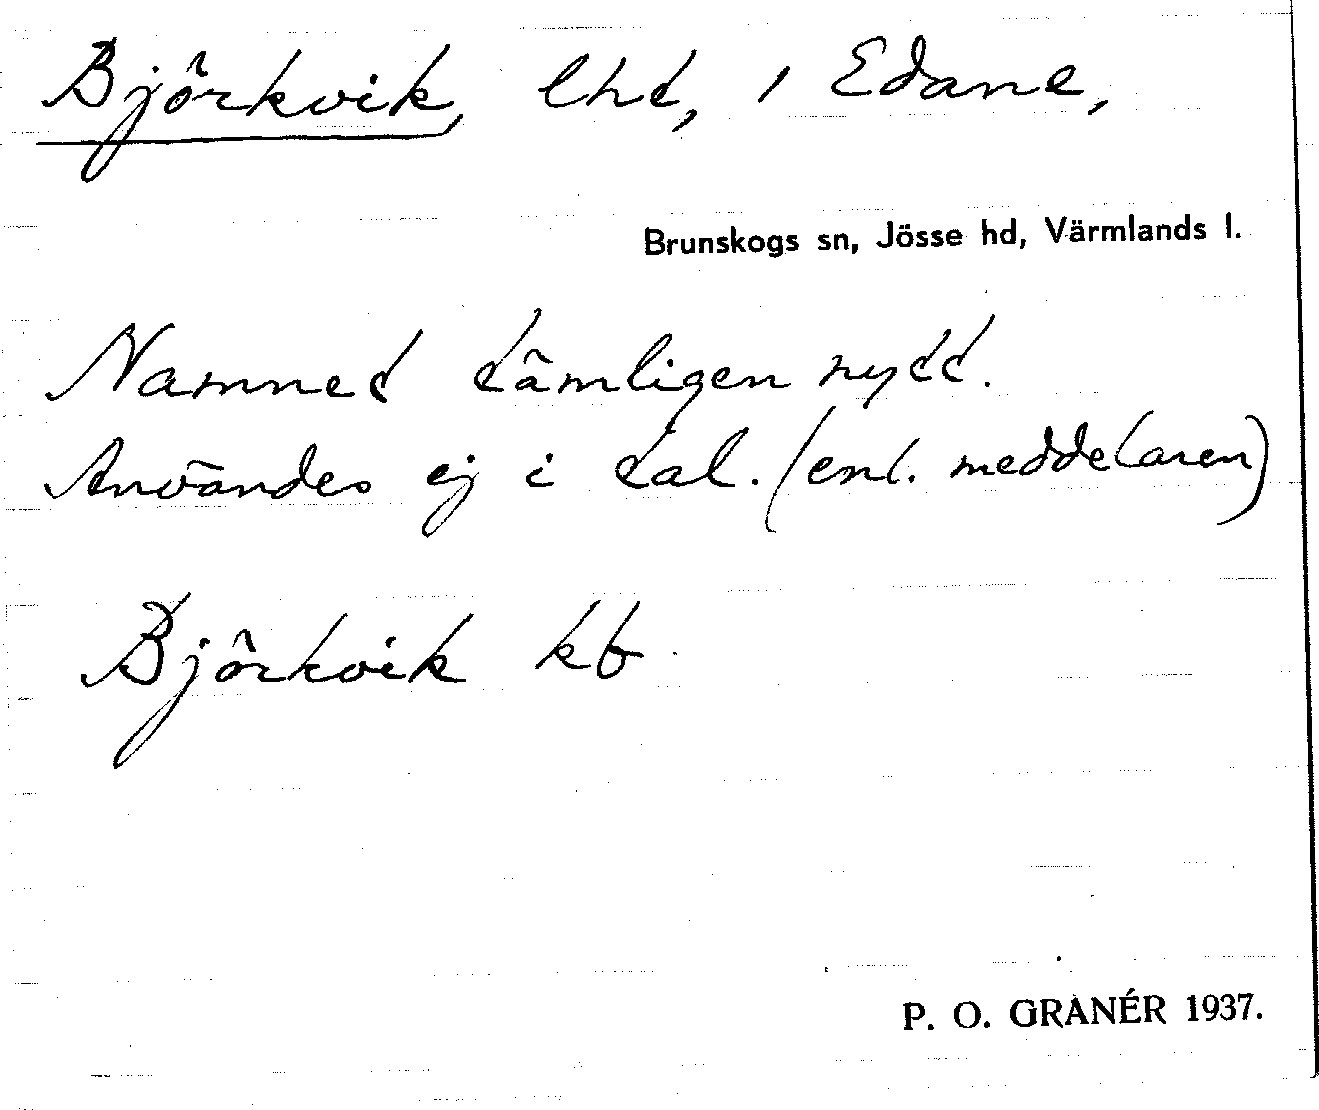 Björkvik, lht, i Edane,
Brunskogs sn, Jösse hd, Värmlands l.
Namnet tämligen nytt.
Användes ej i tal. (enl. meddelaren)
Björkvik kb
P. O. GRANÉR 1937.